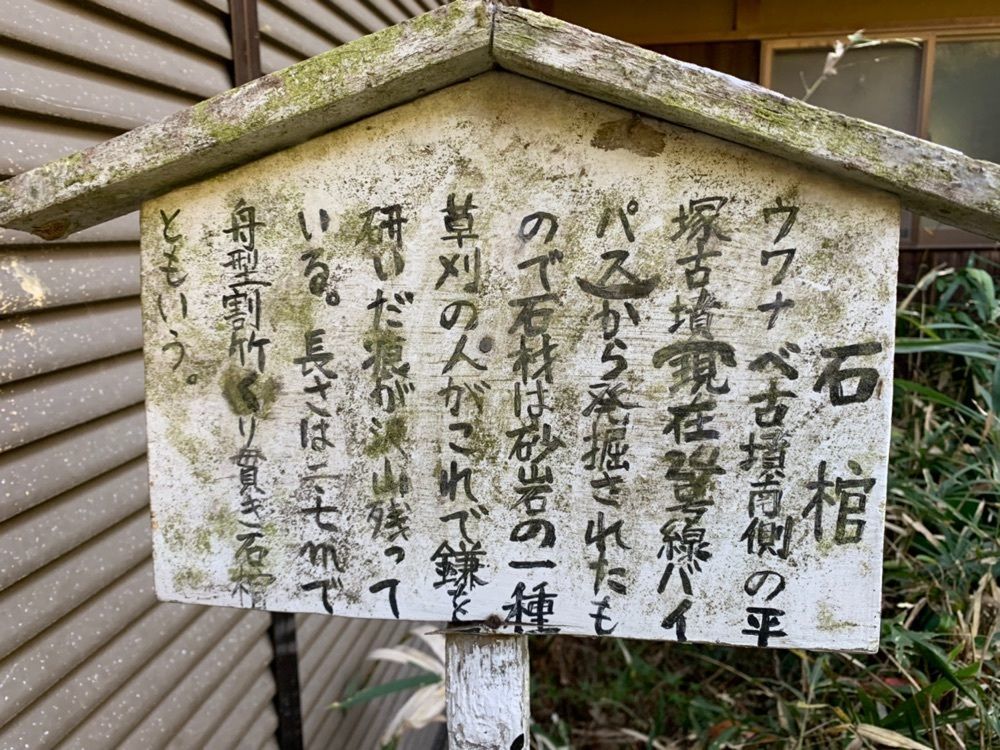 石棺
ウワナベ古墳南側の平
塚古墳(現在24号線バイ
パス)から発掘されたも
ので石材は砂岩の一種
草刈の人がこれで鎌を
研いだ痕が沢山残って
いる。長さは二七mで
舟型割竹くり貫き石棺
ともいう。